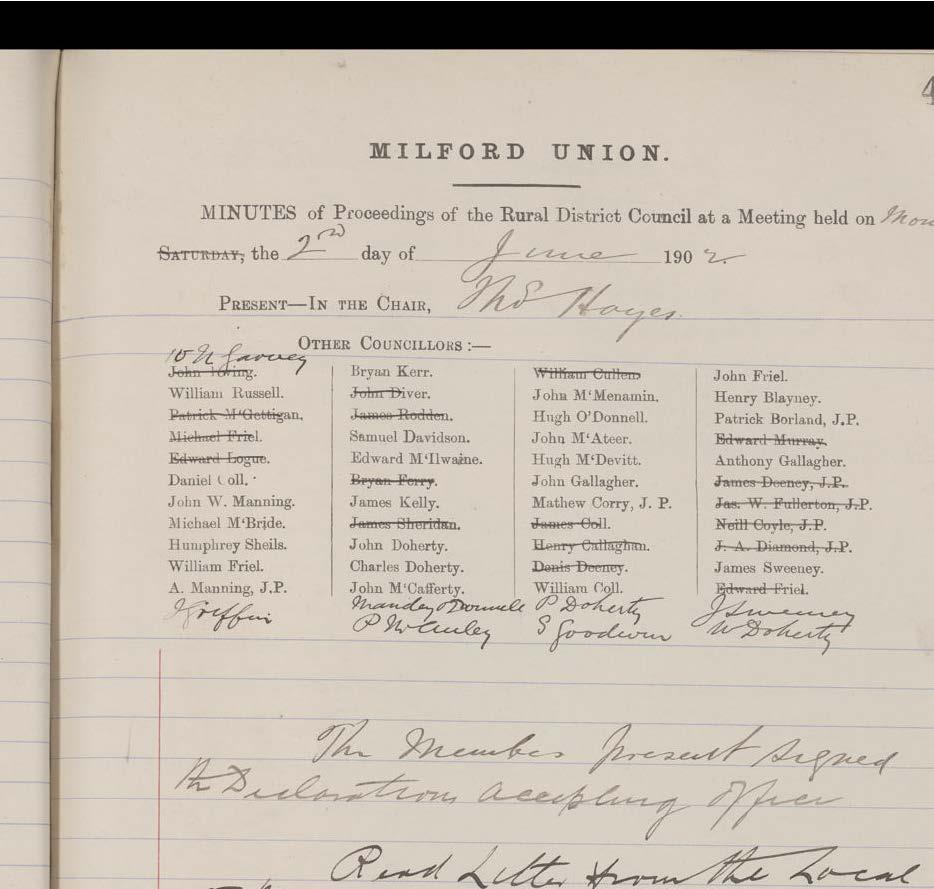 4
MILFORD UNION.
MINUTES of Proceedings of the Rural District Council at a Meeting held on Mon
SATURDAY, the 2nd day of June 1902.
PRESENT—IN THE CHAIR, Thos Hayes.
OTHER COUNCILLORS :—
W N Garvey
John Toving.
William Russell.
Patrick M‘Gettigan.
Michael Friel.
Edward Logue.
Daniel Coll.
John W. Manning.
Michael M‘Bride.
Humphrey Sheils.
William Friel.
A. Manning, J.P.
J Griffin
Bryan Kerr.
John Diver.
James Rodden.
Samuel Davidson.
Edward M‘Ilwaine.
Bryan Ferry.
James Kelly.
James Sheridan.
John Doherty.
Charles Doherty.
John M‘Cafferty.
Manders O'Donnell
P McAuley
William Cullen
John M‘Menamin.
Hugh O’Donnell.
John M‘Ateer.
Hugh M‘Devitt.
John Gallagher.
Mathew Corry, J. P.
James Coll.
Henry Callaghan.
Denis Deeney.
William Coll.
P Doherty
S Goodwin
John Friel.
Henry Blayney.
Patrick Borland, J.P.
Edward Murray.
Anthony Gallagher.
James Deeney, J.P.
Jas. W. Fullerton, J.P.
Neill Coyle, J.P.
J. A. Diamond, J.P.
James Sweeney.
Edward Friel.
J Sweeney
W Doherty
The Members present signed
the Declarations accepting office
Read Letter from the Local